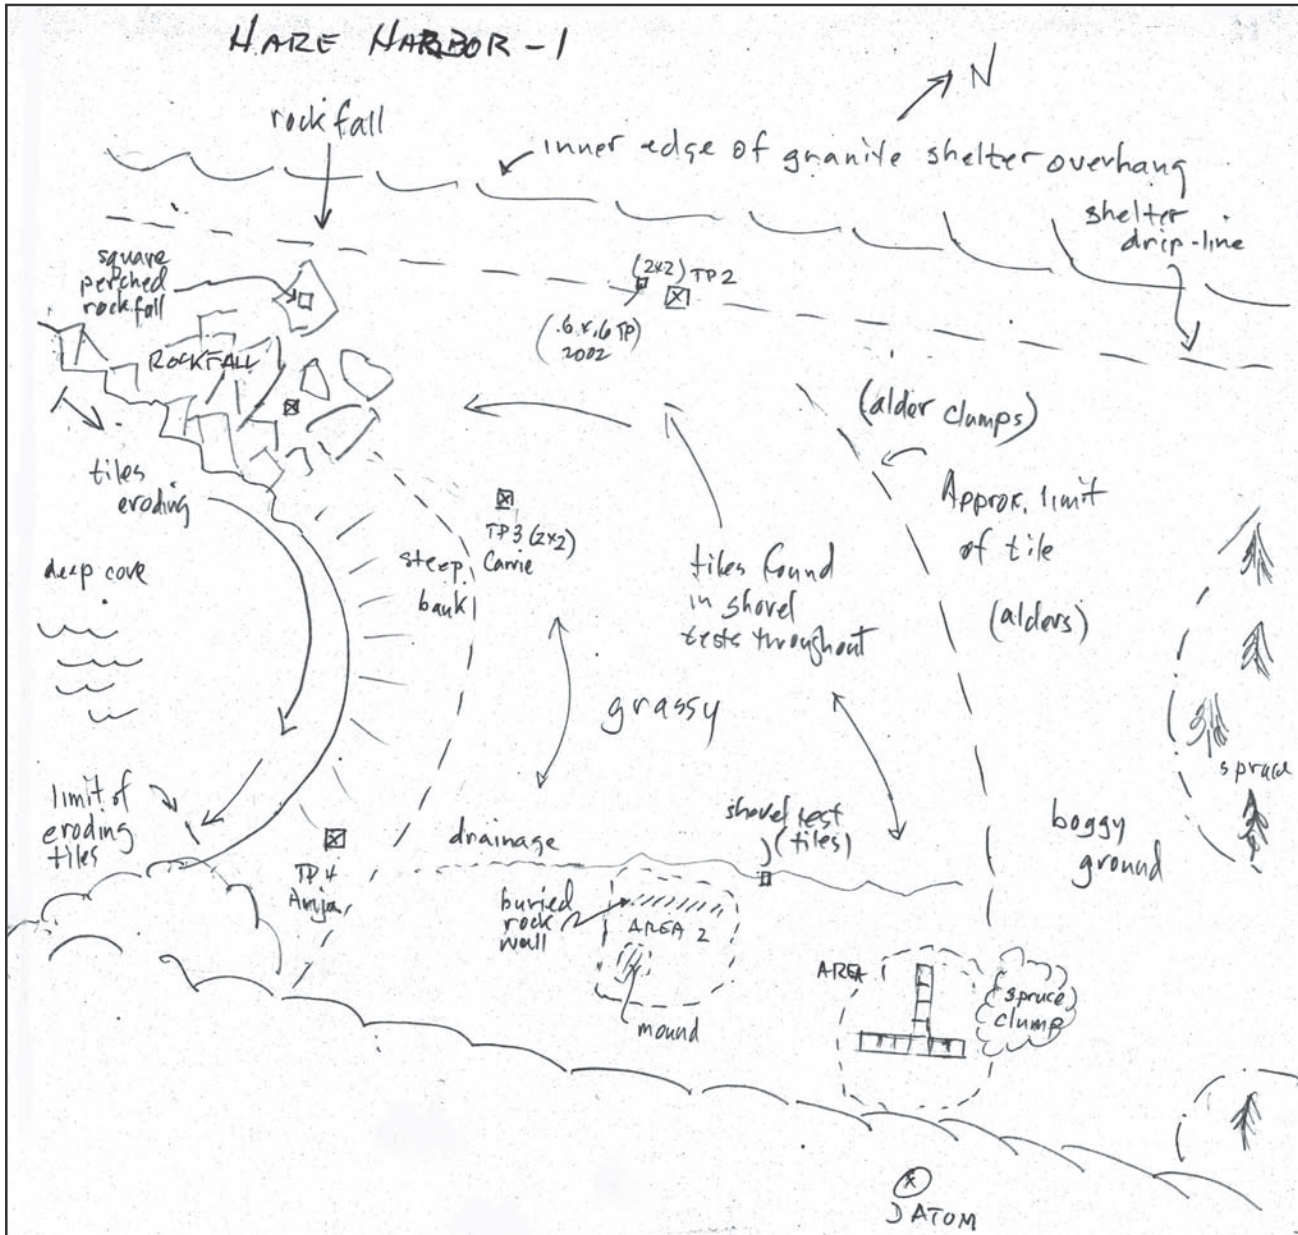 HARE HARBOR-1
N
rockfall
inner edge of granite shelter overhang
shelter
drip-line
square
perched
rockfall
(2x2) TP2
(.6 x .6 TP)
2002
ROCKFALL
(alder clumps)
tiles
eroding
Approx. limit
of tile
(alders)
TP3 (2x2)
Carrie
steep
bank
tiles found
in shovel
tests throughout
deep cove
grassy
spruce
limit of
eroding
tiles
drainage
shovel test
(tiles)
boggy
ground
TP4
Anja
buried
rock
wall
AREA 2
mound
AREA
spruce
clump
DATOM